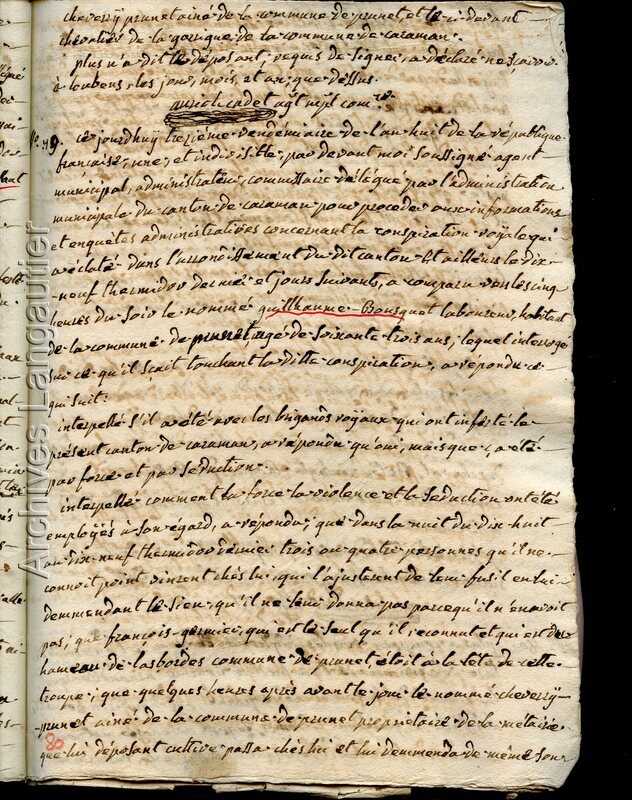 cheverry prunet ainé de la commune de prunet, et le ci devant
chevalier de la garrigue de la commune de caraman.
plus n'a dit le déposant, requis de signer, a déclaré ne sçavoir
à loubens les jour, mois, et an, que dessus.
auriol cadet agt mpl com.re
N.° 79. ce jourdhuy treziéme vendemiaire de l'an huit de la république
francaise, une, et indivisible, par devant moi soussigné agent
municipal, administrateur, commissaire délégué par l'administration
municipale du canton de caraman pour proceder aux informations
et enquêtes administratives concernant la conspiration royale qui
a éclaté dans l'arrondissement du dit canton et ailleurs le dix
neuf thermidor dernier et jours suivants, a comparu vers les cinq
heures du soir le nommé guilhaume Bousquet laboureur, habitant
de la commune de prunet agé de soixante trois ans, lequel interrogé
sur ce qu'il sçait touchant la ditte conspiration, a répondu ce
qui suit:
interpellé s'il a été avec les brigands royaux qui ont infesté le
présent canton de caraman, a répondu qu'oui, mais que ç'a été
par force et par séduction.
interpellé comment la force la violence et la séduction ont été
employés à son egard, a répondu; que dans la nuit du dix huit
au dix neuf thermidor dernier trois ou quatre personnes qu'il ne
connoit point vinrent chés lui, qui l'ajusterent de leur fusil en lui
demmendant le sien, qu'il ne leur donna pas parcequ'il n'en avoit
pas; que françois germier, qui est le seul qu'il reconnut et qui est du
hameau de lasbordes commune de prunet, étoit à la tête de cette
troupe; que quelques heures après avant le jour le nommé cheverry
prunet ainé de la commune de prunet propriétaire de la métairie
que lui déposant cultive passa chés lui et lui demmenda de même son
80
Archives Langautier